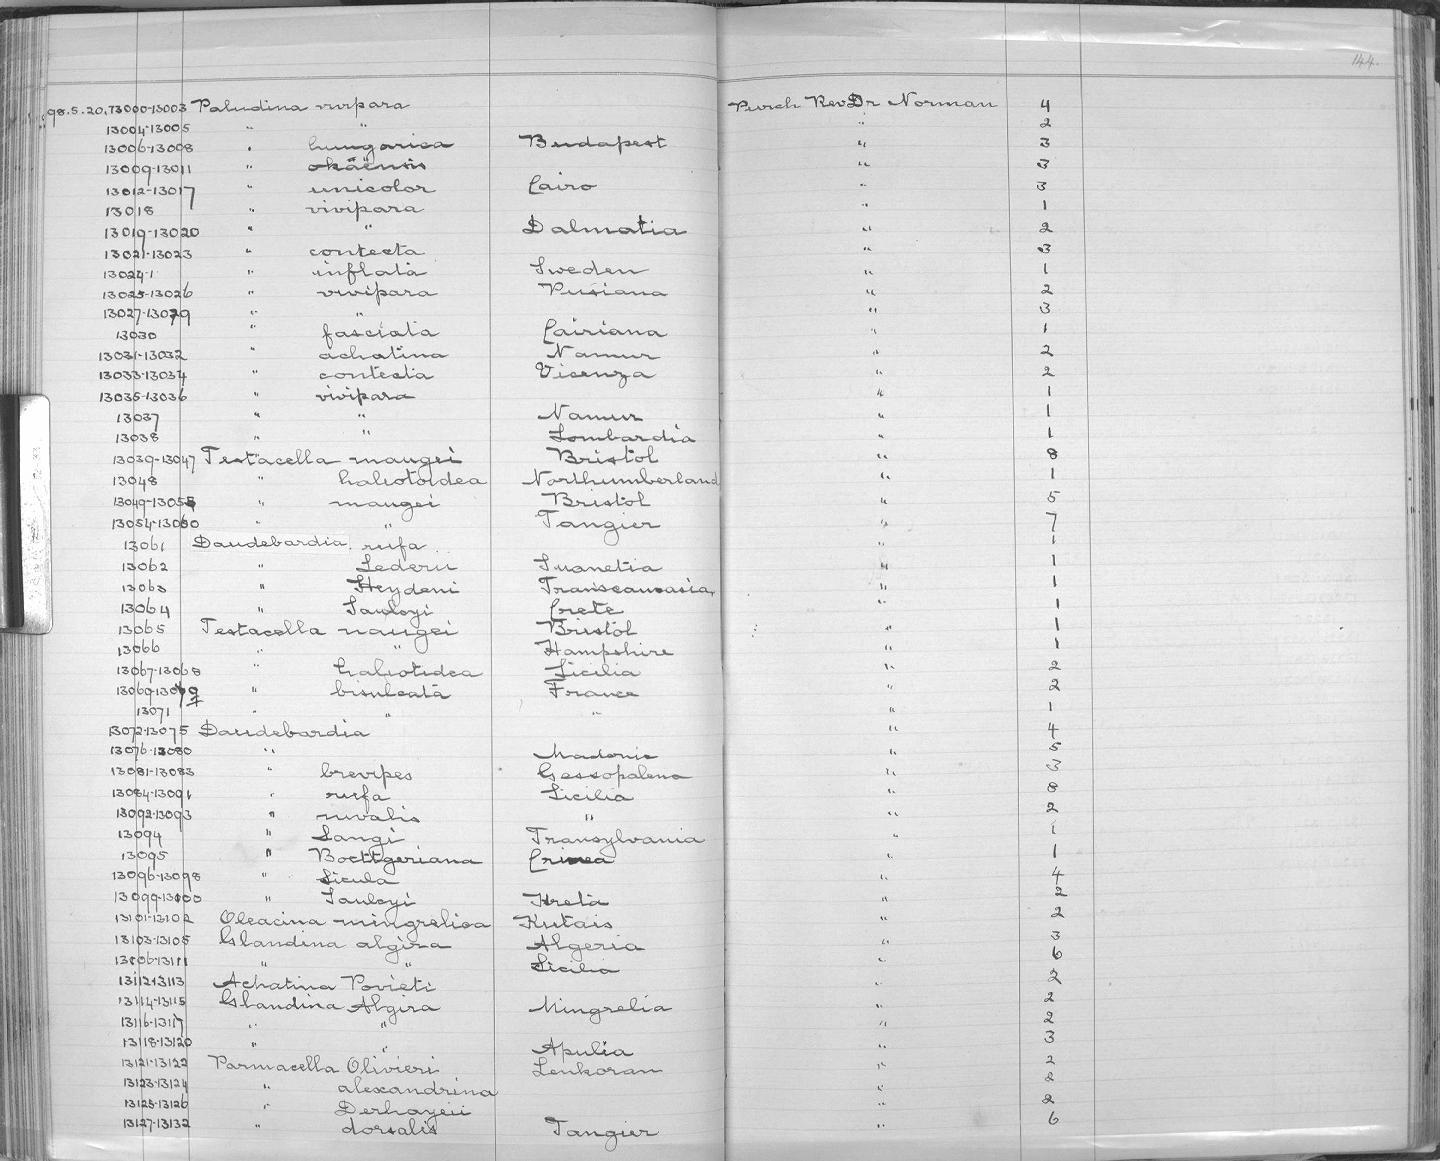 144.
98.5.20.13000-13003 Paludina vivipara Purch Rev Dr Norman 4
13004-13005 " " " 2
13006-13008 " hungarica Budapest " 3
13009-13011 " okäensis " 3
13012-13017 " unicolor Cairo " 3
13018 " vivipara " 1
13019-13020 " " Dalmatia " 2
13021-13023 " contecta " 3
13024-1 " inflata Sweden " 1
13025-13026 " vivipara Pusiana " 2
13027-13029 " " " 3
13030 " fasciata Cairiana " 1
13031-13032 " achatina Namur " 2
13033-13034 " contecta Vicenza " 2
13035-13036 " vivipara " 1
13037 " " Namur " 1
13038 " " Lombardia " 1
13039-13047 Testacella maugei Bristol " 8
13048 " haliotoidea Northumberland " 1
13049-13053 " maugei Bristol " 5
13054-13060 " " Tangier " 7
13061 Daudebardia rufa " 1
13062 " Lederii Suanetia " 1
13063 " Heydeni Transcaucasia " 1
13064 " Saulcyi Crete " 1
13065 Testacella maugei Bristol " 1
13066 " " Hampshire " 1
13067-13068 " haliotidea Sicilia " 2
13069-130 " bisulcata France " 2
13071 " " " " 1
13072-13075 Daudebardia " 4
13076-13080 " Madonie " 5
13081-13083 " brevipes Gessopalena " 3
13084-13091 " rufa Sicilia " 8
13092-13093 " nivalis " " 2
13094 " Langi Transylvania " 1
13095 " Boettgeriana Crimea " 1
13096-13098 " Sicula " 4
13099-13100 " Saulcyi Kreta " 2
13101-13102 Oleacina mingrelica Kutais " 2
13103-13105 Glandina algira Algeria " 3
13106-13111 " " Sicilia " 6
13112-13113 Achatina Povieti " 2
13114-13115 Glandina Algira Mingrelia " 2
13116-13117 " " " 2
13118-13120 " Apulia " 3
13121-13122 Parmacella Olivieri Lenkoran " 2
13123-13124 " alexandrina " 2
13125-13126 " Derhayeii " 2
13127-13132 " dorsalis Tangier " 6